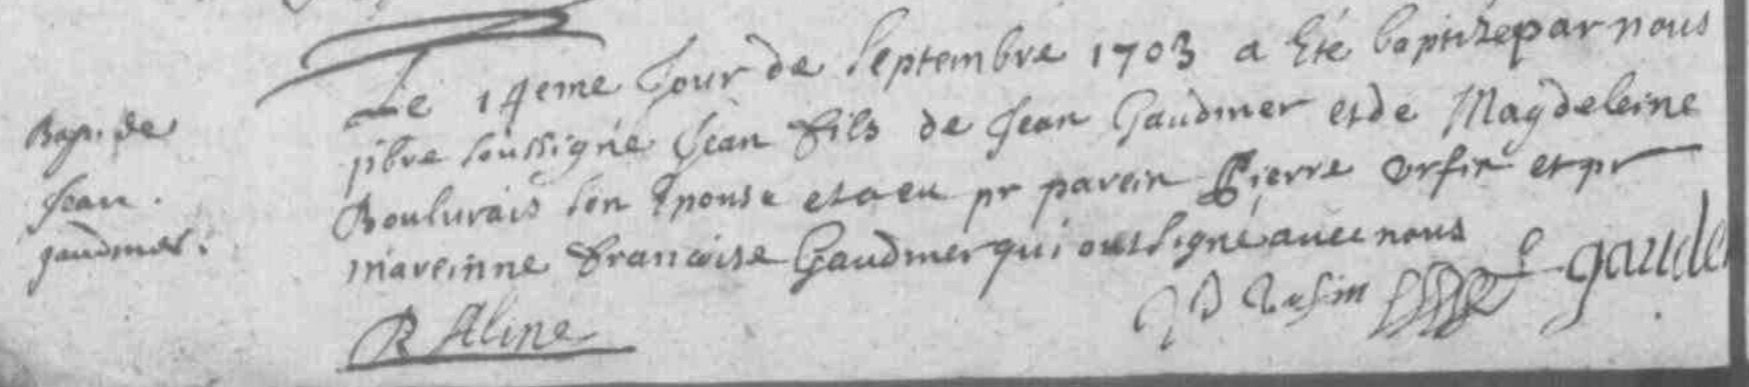 Bap. de
Jean.
gaudmer.
Le 14eme Jour de Septembre 1703 a Eté baptizé par nous
pbre soussigné Jean Fils de Jean Gaudmer et de Magdeleine
Boulurais son Epouse et a eu pr parein Pierre Orfin et pr
mareinne Francoise Gaudmer qui ont signé avec nous
F gaude
R Aline